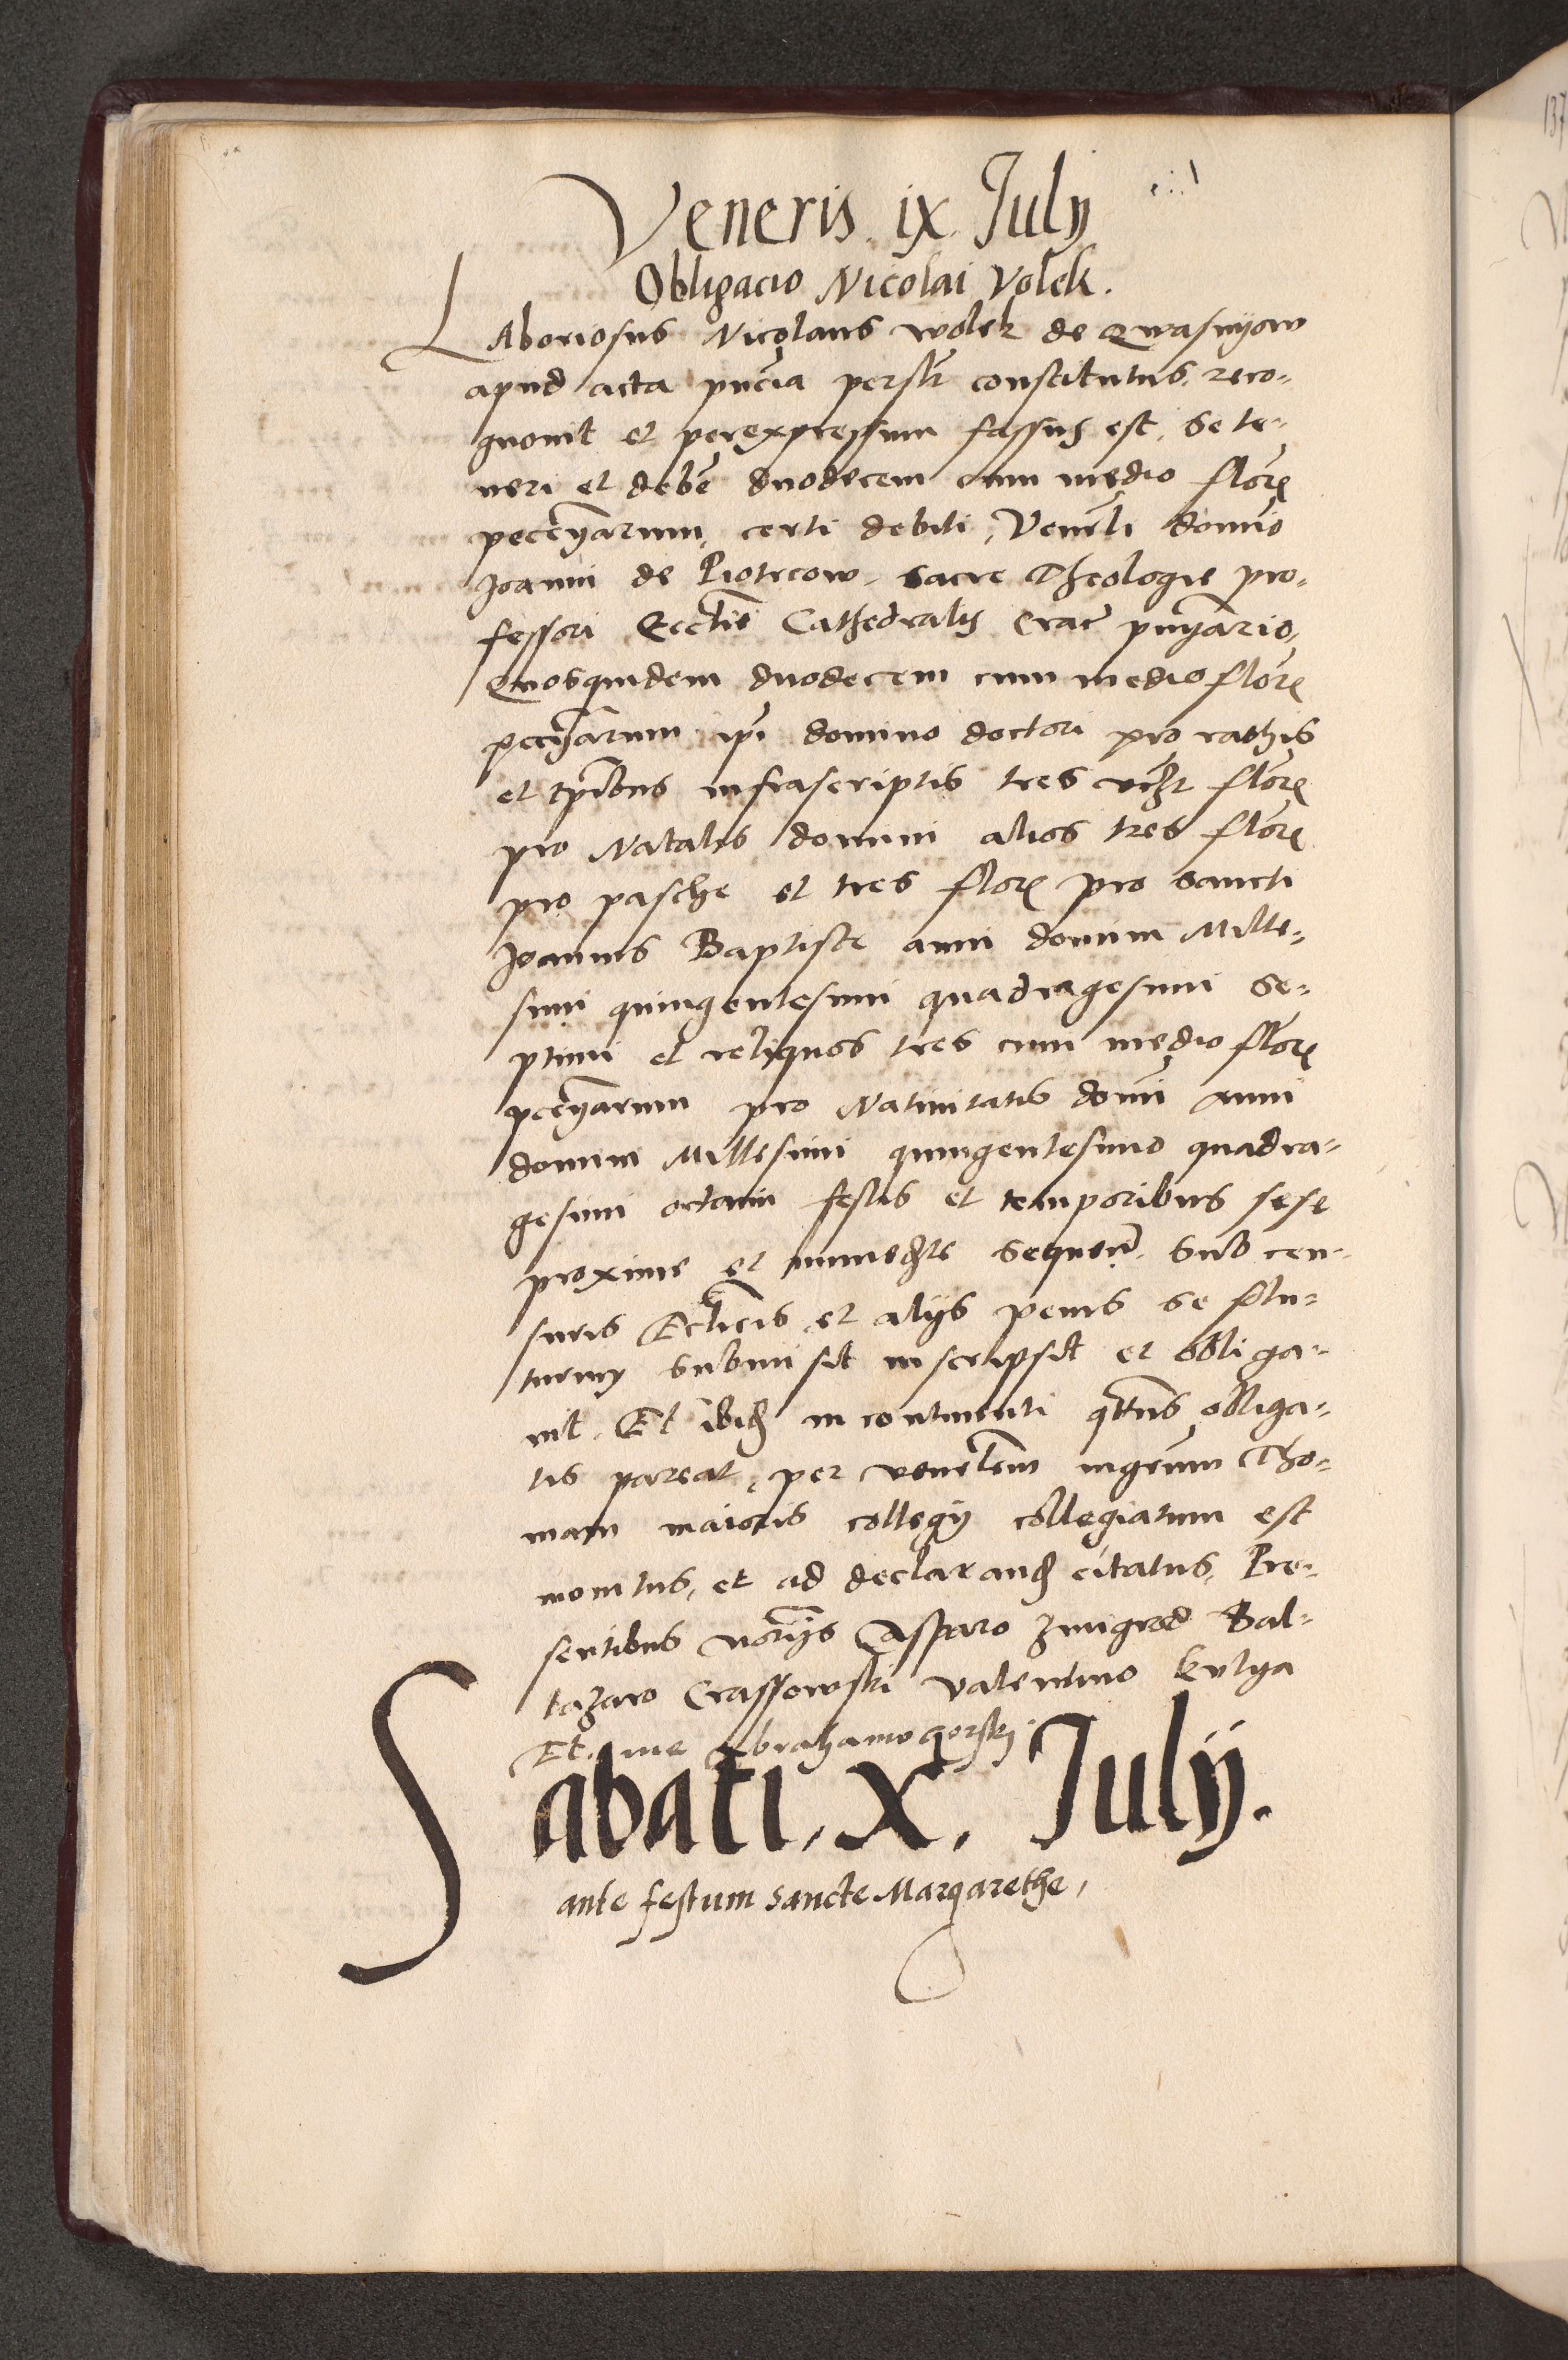 Veneris ix July
Obligacio Nicolai Volek.
Laboriosus Nicolaus wolek de Qwasnyow
apud acta pñcia persolr constitutus, reco-
gnovit et per expressum fassus est, se te-
neri et debẽ duodecem cum medio flor
peccunarium, certi debiti, Venerli domĩo
Joanni de Piotrcow, sacre Theologie pro-
fessori Ecctie Cathedralis Crac
Quosquidem duodecem cum medio flor
ipĩ domino doctori pro rathis
et tpĩbus infrascriptis tres vczt flor
pro Natalis domini alios tres flor
pro pasche et tres flor pro sancti
Joannis Baptiste anni domini Mille-
simi quingentesimi quadragesimi se-
ptimi et reliquos tres cum medio flor
pro Nativitatis domĩ anni
domini Millesimi quingentesimo quadra-
gesimi octavi festis et temporibus sese
proxime et immedte sequeñ, sub cen-
suris Ecclicis et alijs penis se solu-
turum submisit inscripsit et obliga-
vit. Et ibid in continenti qtnus obliga-
tis pareat, per venerlem mgrum Tho-
mam maioris collegij collegiatum est
monitus, et ad declarand citatus, Pre-
sentibus notrijs Casparo Zmigrod Bal-
tazaro Crassowski valentino kulga
Et me Abrahamo gorskj
Sabati, X, July.
ante festum sancte Margarethe,
137